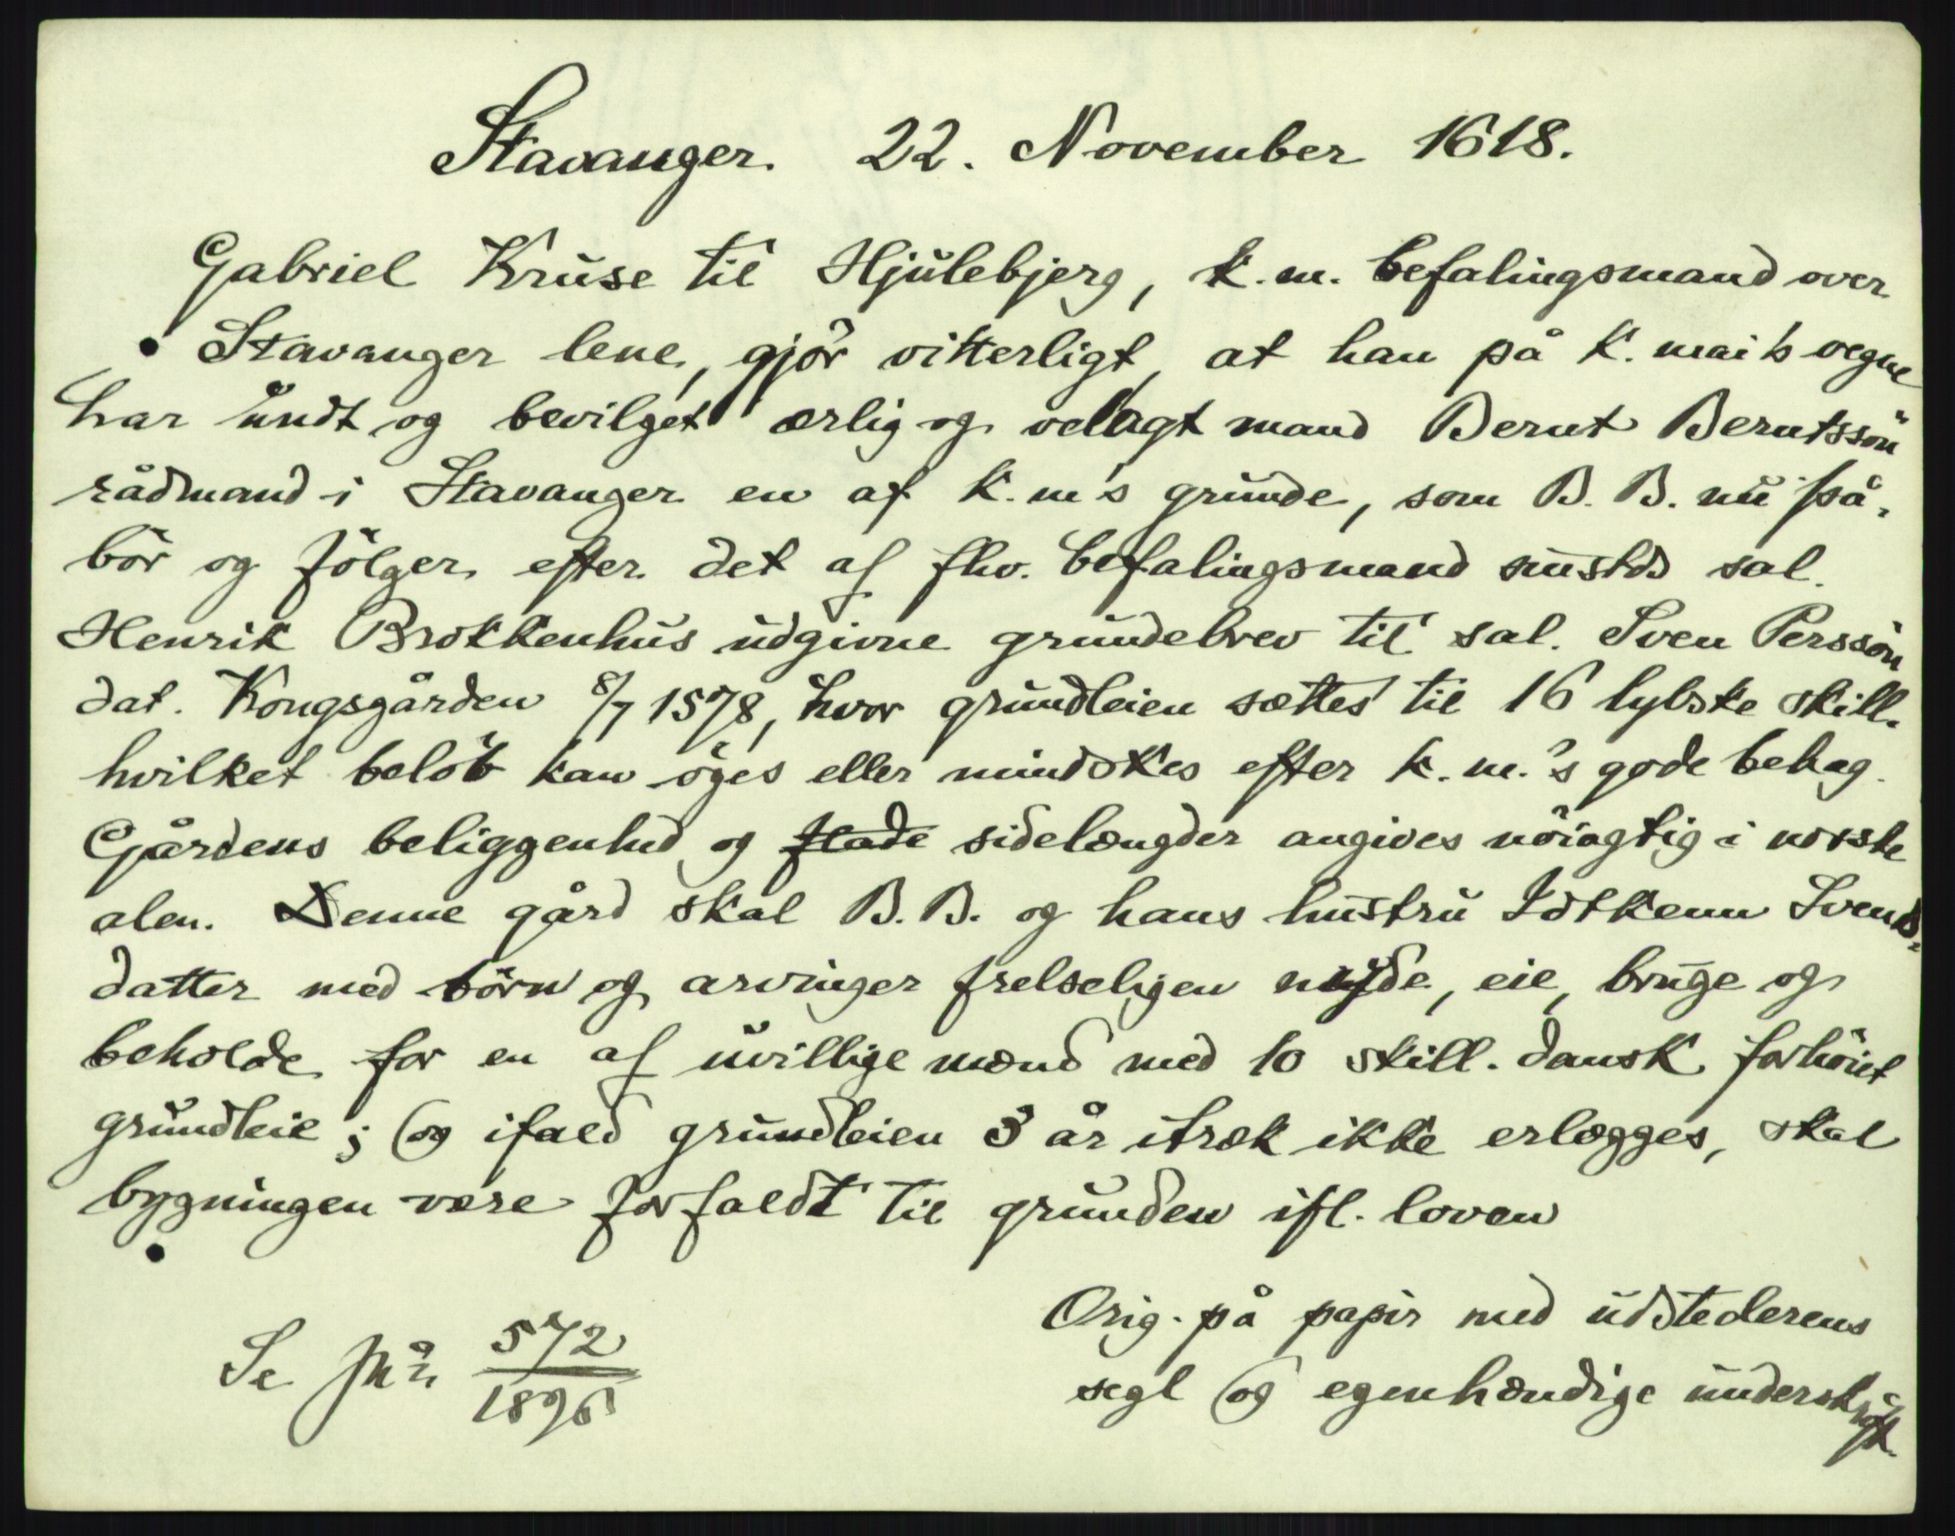 Stavanger. 22. November 1618.
Gabriel Kruse til Hjulebjerg, k.m. befalingsmand over
Stavanger lene, gjör vitterligt, at han på k. mai's vegne
har undt og bevilget ærlig og velagt mand Bernt Berntssön
rådmand i Stavanger en af k.m's grunde, som B. B. nu på-
bör og fölger efter det af fhv. befalingsmand sal.
Henrik Brokkenhus udgivne grundebrev til sal. Sven Perssön
dat. Kongsgården 8/7 1578, hvor grundleien sættes til 16 lybske skill.
hvilket belöb kan öges eller mindskes efter k.m.'s gode behag.
Gårdens beliggenhed og flade sidelængder angives nöiagtig i norske
alen. Denne gård skal B. B. og hans hustru Idtkenn Svends-
datter med börn og arvinger frelseligen nyde, eie, bruge og
beholde for en af uvillige mænd med 10 skill. dansk forhöiet
grundleie; og ifald grundleien 3 år itræk ikke erlægges, skal
bygningen være forfaldt til grunden ifl. loven
Orig. på papir med udstederens
segl og egenhændige underskrift.
Se 572/1896